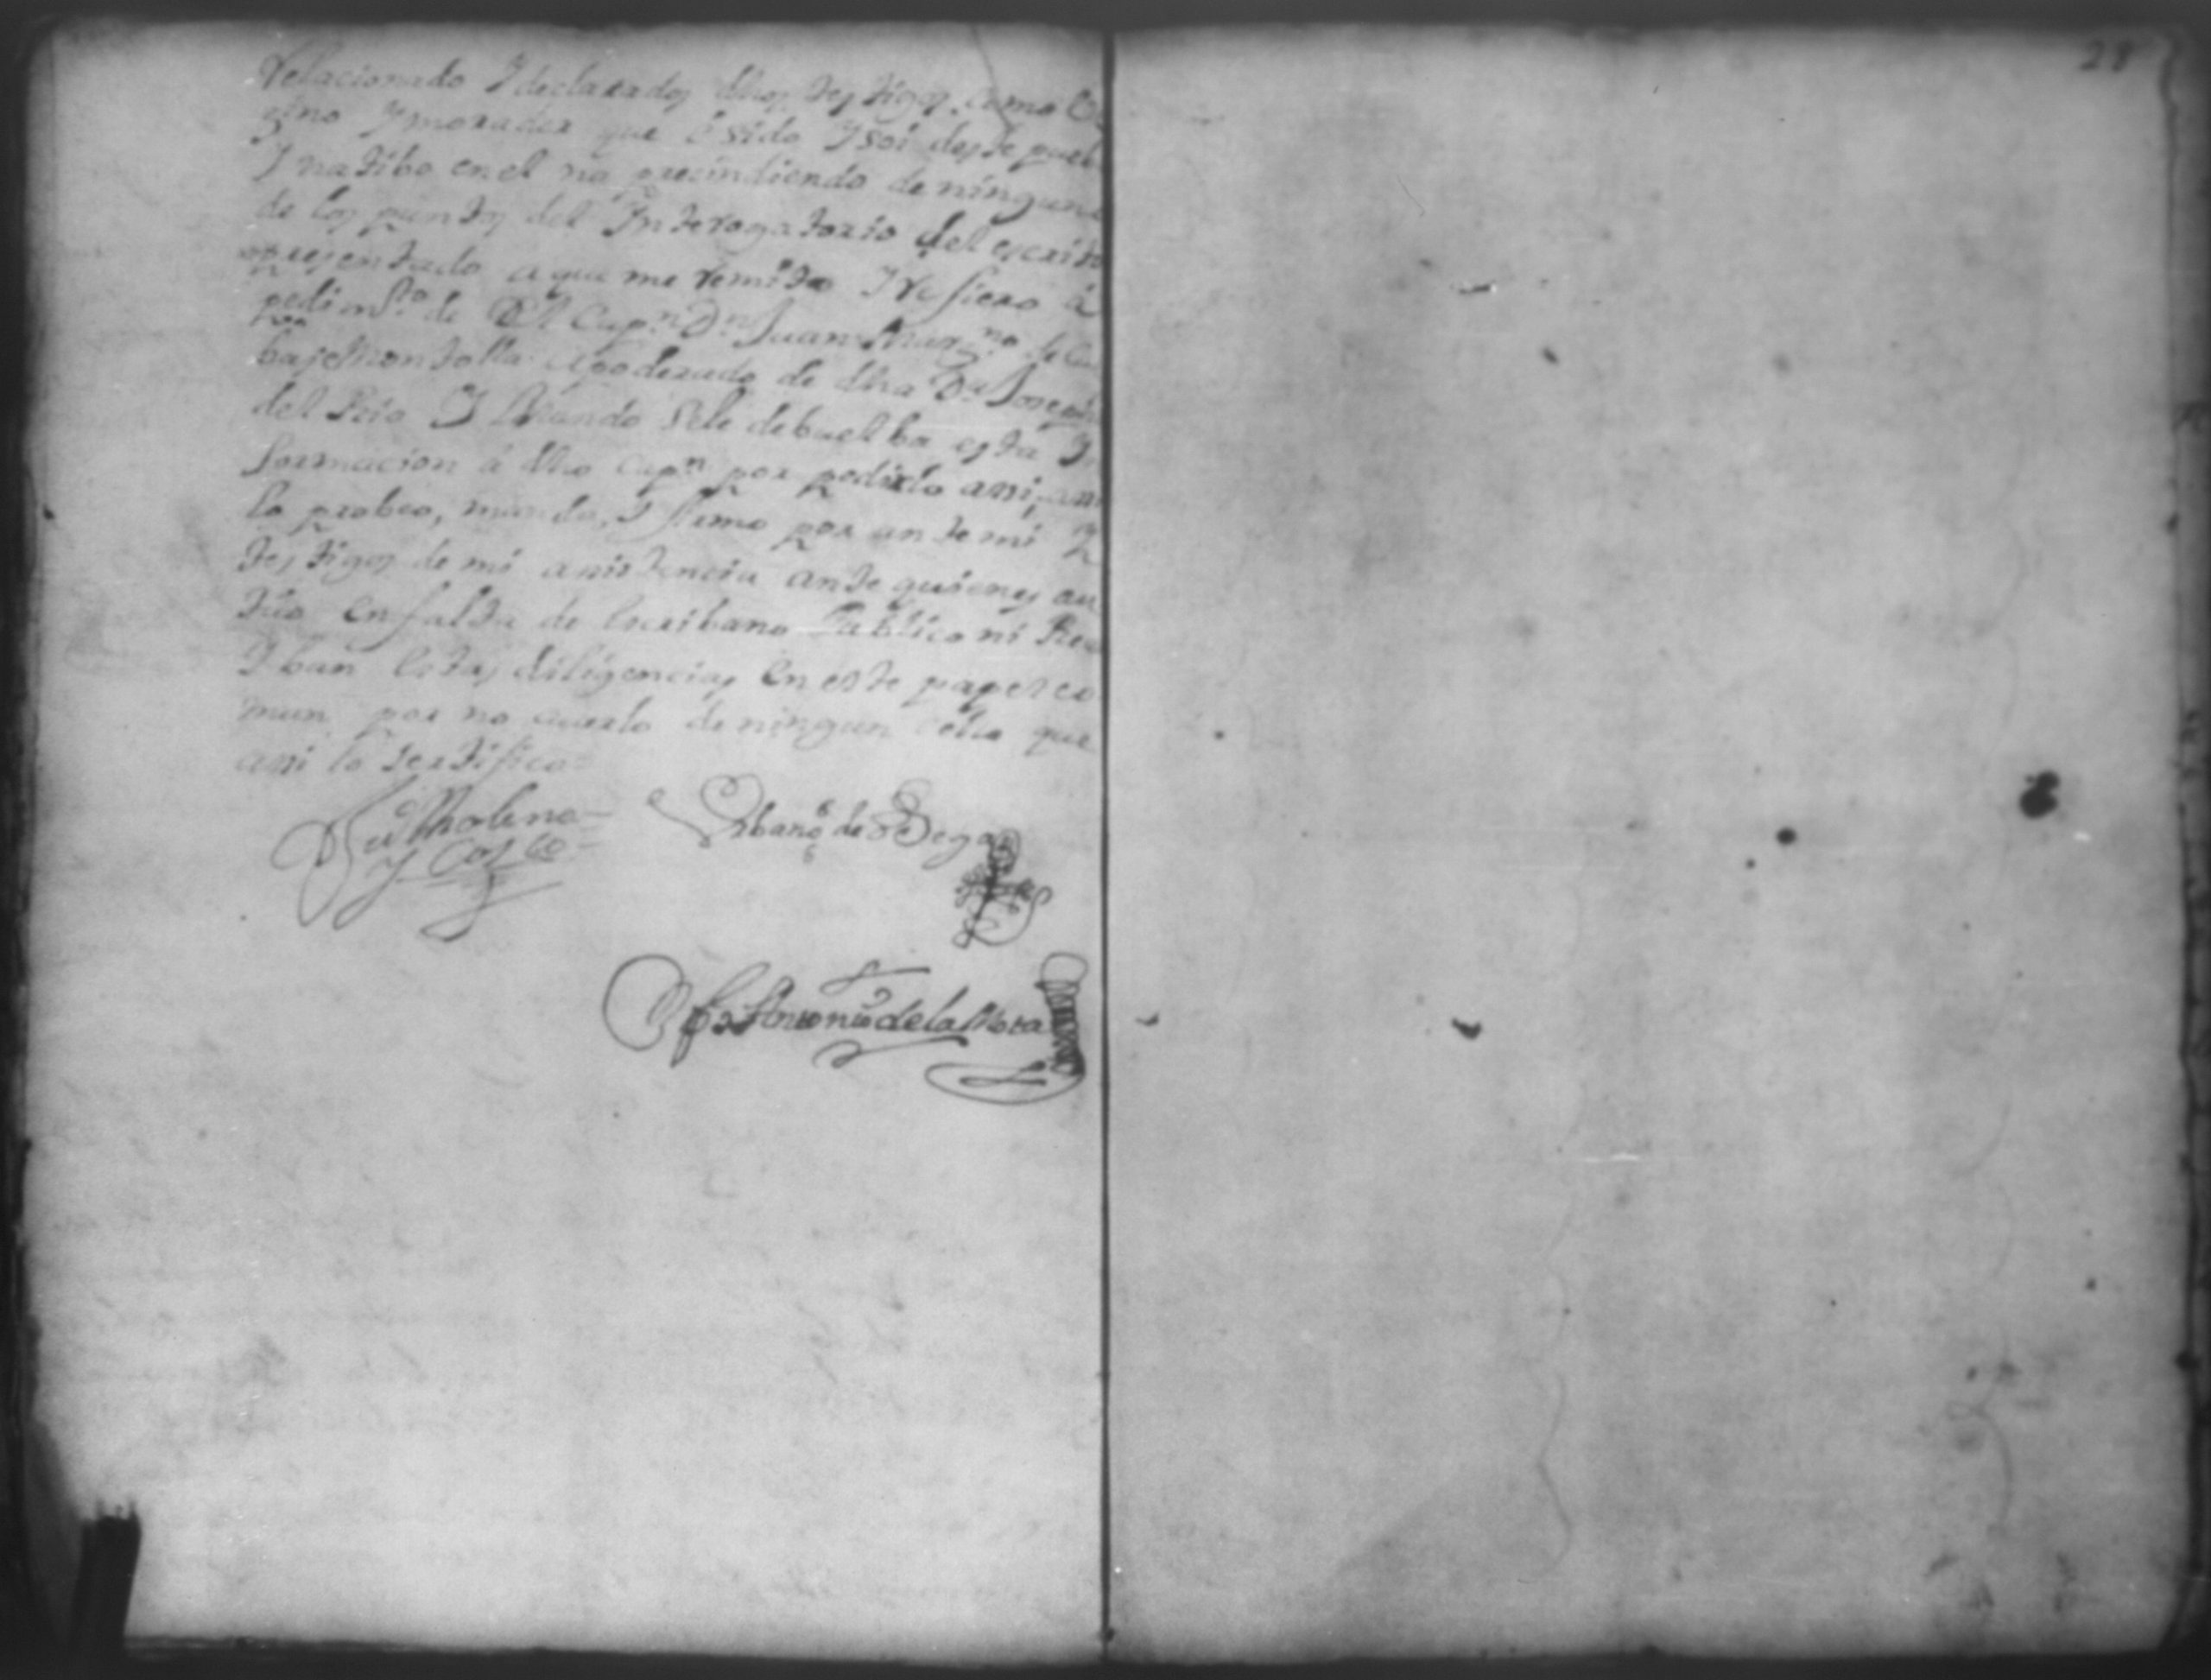 28
relacionado Y declarados dhos testigos como be
zino Y morador que é sido Y soi deste pueb
Y natibo en el no precindiendo de ninguno
de los puntos del Ynterogatorio del escrito
presentado a que me remito Y refiero á
pedimto de El Capn Dn Juan de
Montolla Apoderado de dha Da Josepha
del Rio Y Mando se le debuelba esta Yn
formacion á dho Capn por pedirlo assi, assi
lo probeo, mando, Y firmo por ante mi Y
testigos de mi asistencia ante quienes au
tuo en falta de Escribano Publico ni Real
Y ban estas diligencias en este papel co
mun por no auerlo de ningun sello que
assi lo sertifico=
Molina
Y Cosio
Urbano de Bega
Antonio de la Mora